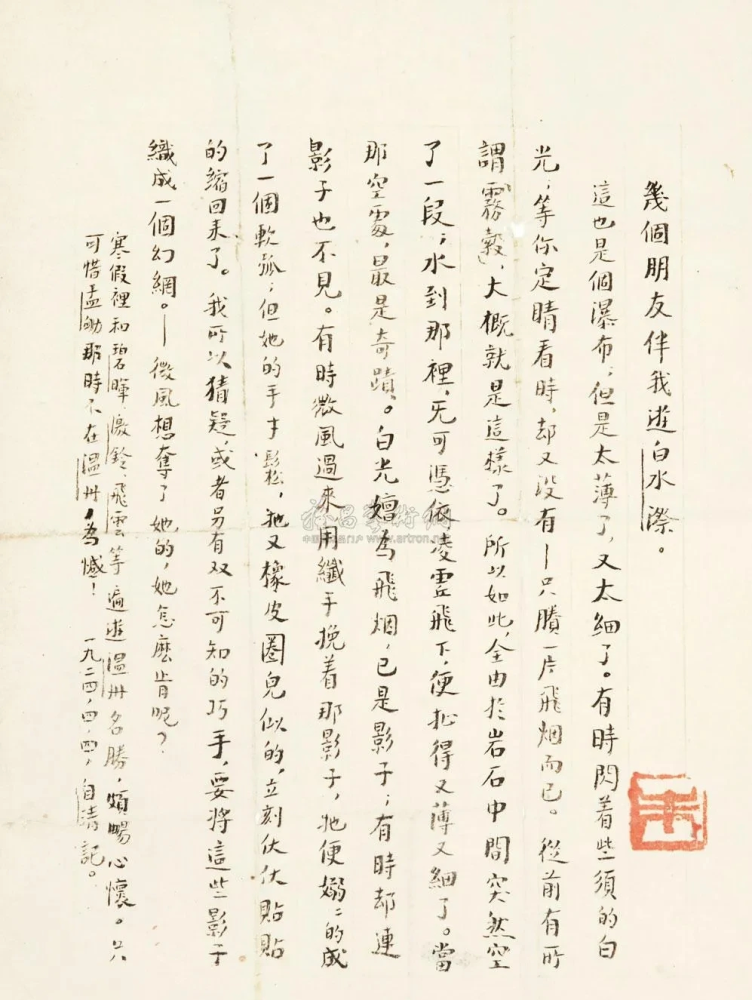 幾個朋友伴我遊白水漈。
這也是個瀑布；但是太薄了，又太細了。有時閃着些須的白
光；等你定睛看時，却又没有——只賸一片飛烟而已。從前有所
謂「霧縠」，大概就是這樣了。所以如此，全由於岩石中間突然空
了一段；水到那裡，无可憑依，凌雲飛下，便扯得又薄又細了。當
那空處，最是奇蹟。白光嬗為飛烟，已是影子；有時却連
影子也不見。有時微風過來，用纖手挽着那影子，牠便嫋嫋的成
了一個軟弧；但她的手才鬆，牠又橡皮圈兒似的，立刻伏伏貼貼
的縮回來了。我所以猜疑，或者另有双不可知的巧手，要將這些影子
織成一個幻網。——微風想奪了她的，她怎麼肯呢？
寒假裡和碧暉、㵑鈴、飛雲等遍遊溫州名勝，頗暢心懷。只
可惜孟劬那時不在溫州，為憾！ 一九二四，四，四，自清記。